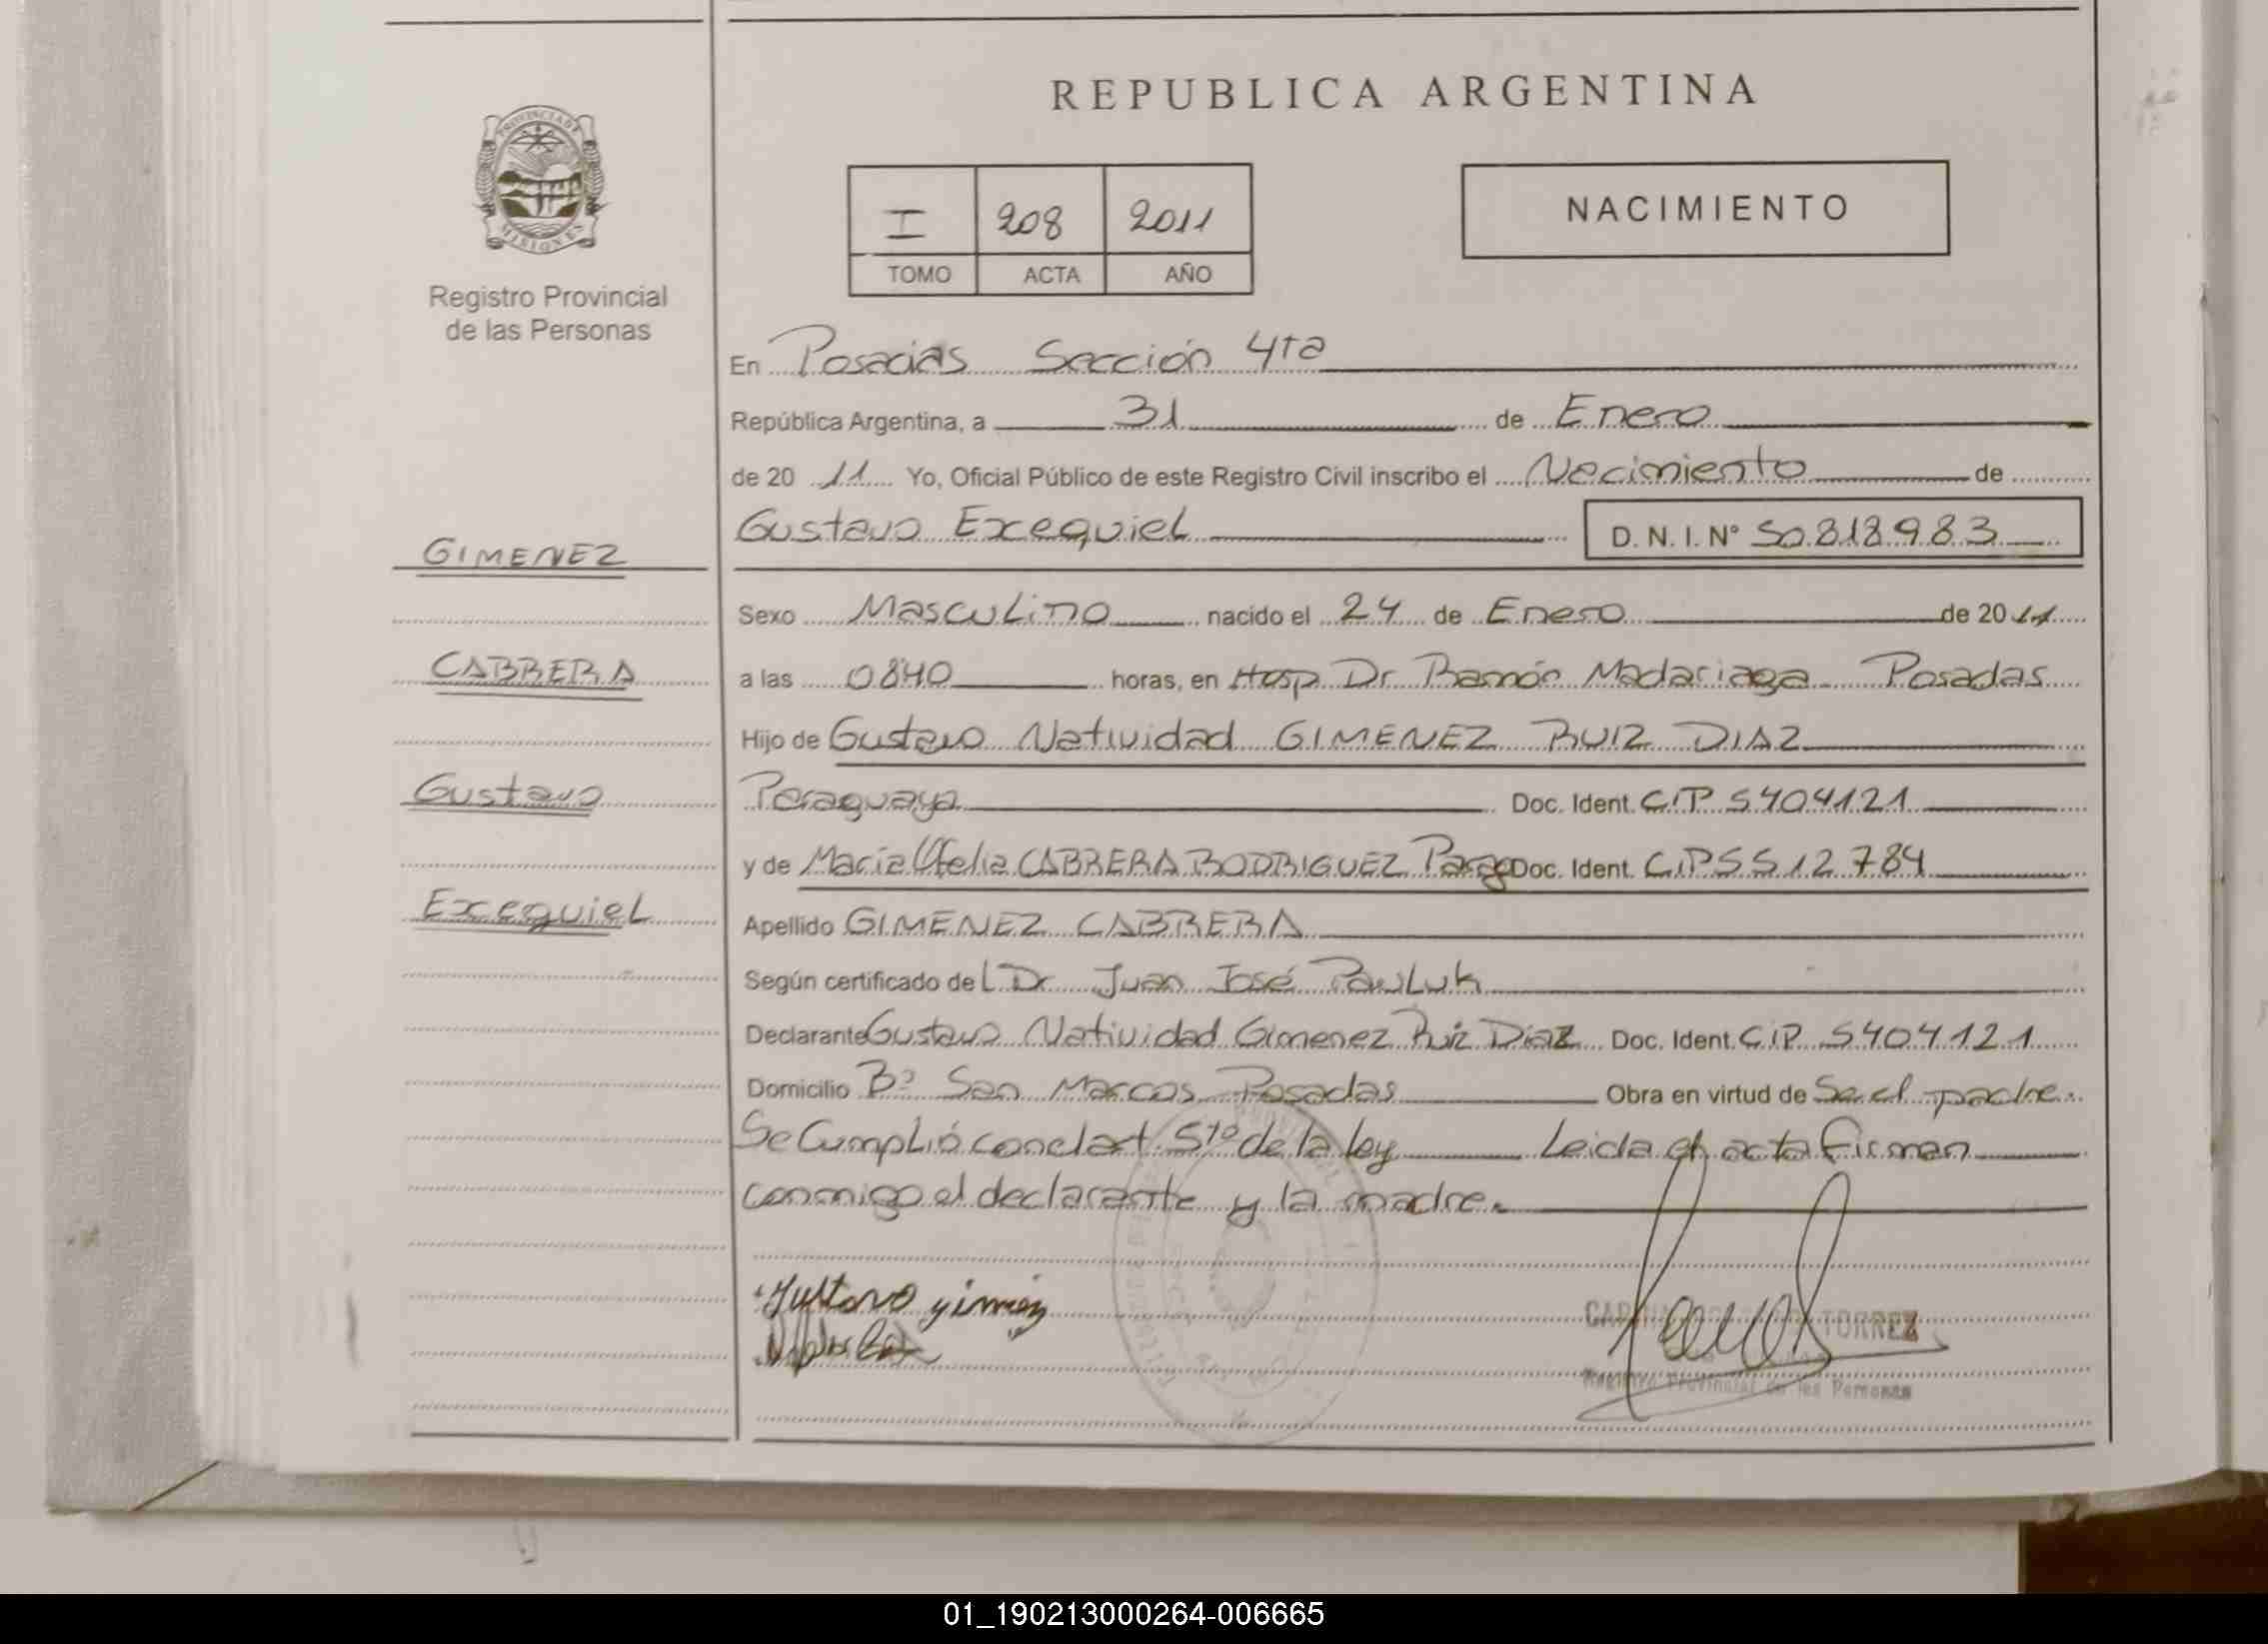 REPUBLICA ARGENTINA
PROVINCIA DE
MISIONES
Registro Provincial
de las Personas
I 208 2011
TOMO ACTA AÑO
NACIMIENTO
En Posadas Sección 4ta
República Argentina, a 31 de Enero
de 20 11 Yo, Oficial Público de este Registro Civil inscribo el Nacimiento de
Gustavo Exequiel D. N. I. Nº 50.818.983
GIMENEZ
CABRERA
Gustavo
Exequiel
Sexo Masculino nacido el 24 de Enero de 2011
a las 0840 horas, en Hosp Dr Ramón Madariaga Posadas
Hijo de Gustavo Natividad GIMENEZ RUIZ DIAZ
Paraguaya Doc. Ident. CIP 5404121
y de Maria Ofelia CABRERA RODRIGUEZ Parag Doc. Ident. CIP 5512784
Apellido GIMENEZ CABRERA
Según certificado del Dr Juan José Pawluk
Declarante Gustavo Natividad Gimenez Ruiz Diaz Doc. Ident. CIP 5404121
Domicilio Bº San Marcos Posadas Obra en virtud de Se el padre.
Se Cumplió con el art 5to de la ley Leida el acta firman
conmigo el declarante y la madre.
Gustavo gimenez
TORREZ
Registro Provincial de las Personas
01_190213000264-006665